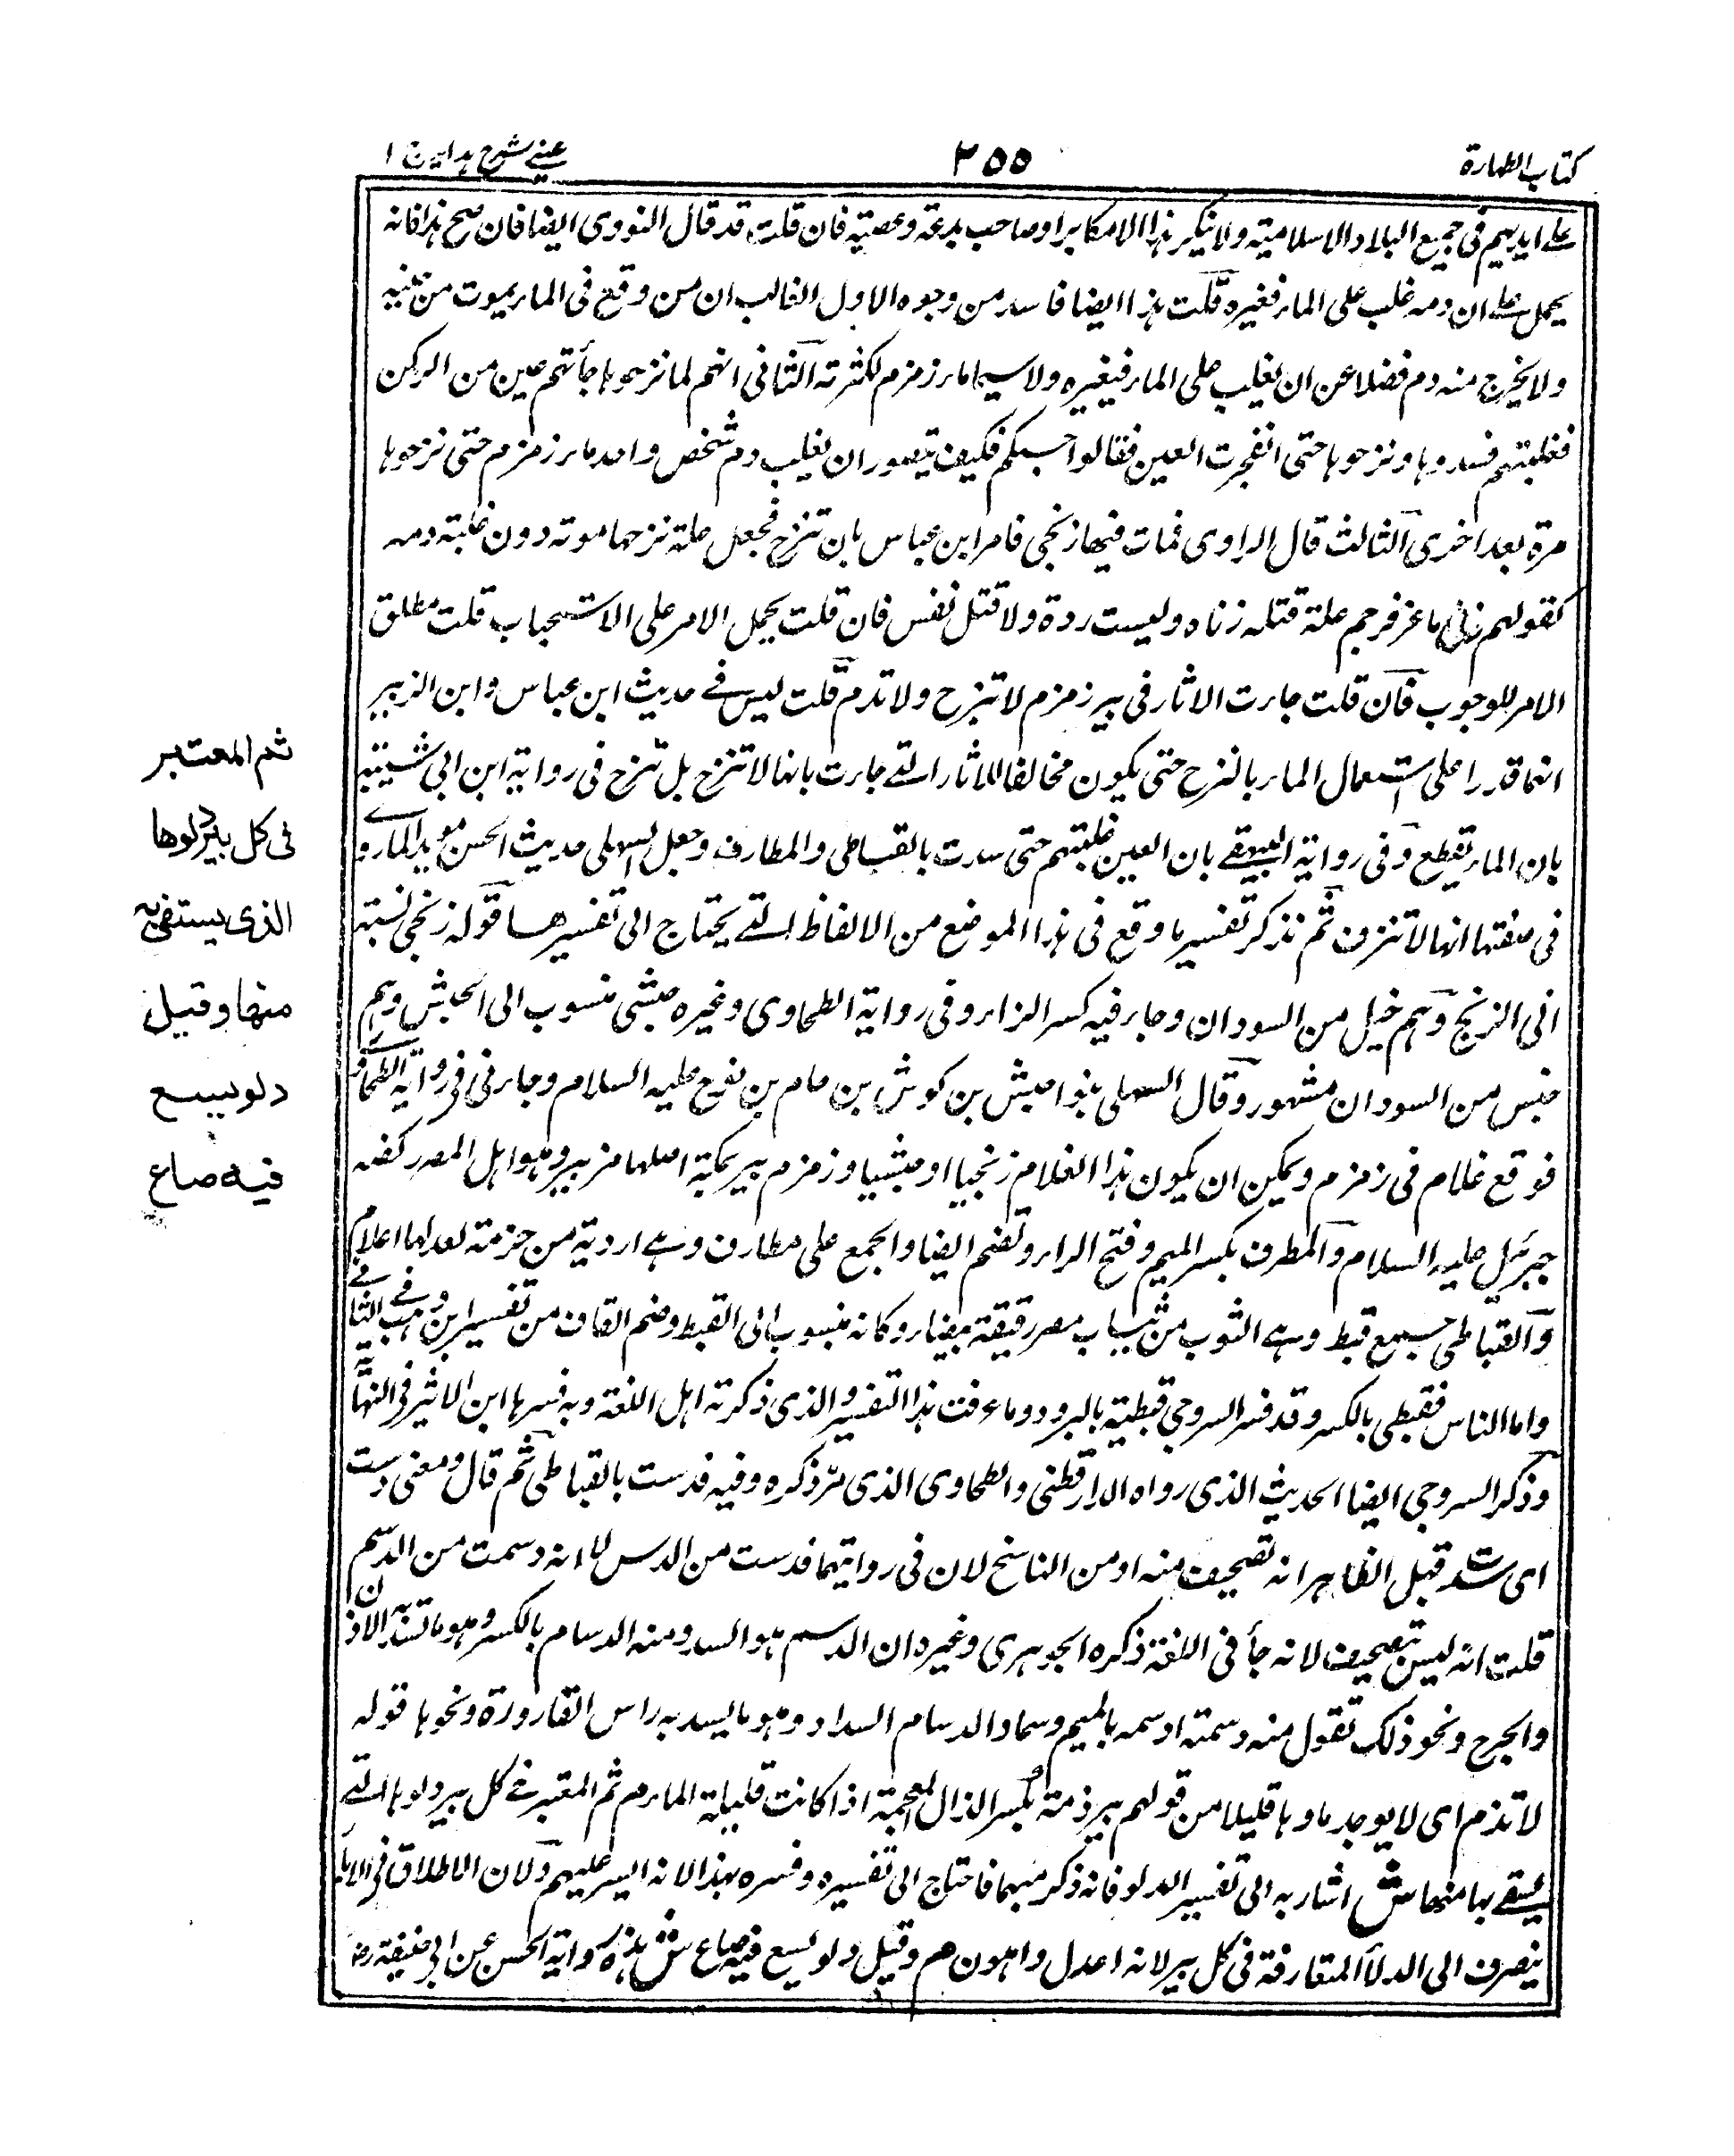 كتاب الطهارة
٣٥٥
عيني شرح هدايه ج ١
على ايديهم في جميع البلاد الاسلامية ولا ينكر هذا الا مكابر او صاحب بدعة وعصبية فان قلت قد قال النووى ايضا فان صح هذا فانه
يحمل على ان دمه غلب على الماء فغيره قلت هذا ايضا فاسد من وجوه الاول الغالب ان من وقع فى الماء يموت من تغيبه
ولا يخرج منه دم فضلا عن ان يغلب على الماء فيغيره ولا سيما ماء زمزم لكثرته الثانى انهم لما نزحوها جأتهم عين من الركن
فغلبتهم فسدوها ونزحوها حتى انفجرت العين فقالوا حسبكم فكيف يتصور ان يغلب دم شخص واحد ماء زمزم حتى نزحوها
مرة بعد اخرى الثالث قال الراوى فمات فيها زنجى فامر ابن عباس بان تنزح فجعل علة نزحها موته دون غلبة دمه
كقولهم زنى ماعز فرجم علة قتله زناه وليست ردة ولا قتل نفس فان قلت يحمل الامر على الاستحباب قلت مطلق
الامر للوجوب فان قلت جاءت الاثار فى بير زمزم لا تنزح ولا تذم قلت ليس فے حديث ابن عباس وابن الزبير
انهما قدرا على استيصال الماء بالنزح حتى يكون مخالفا للاثار التے جاءت بانها لا تنزح بل تنزح فى رواية ابن ابى شيبة
بان الماء يقطع وفى رواية البيهقے بان العين غلبتهم حتى سدت بالقباطى والمطارف وجعل السهيلى حديث الحسن مؤيدا لما روے
فى صفتها انها لا تنزف ثم نذكر تفسير ما وقع فى هذا الموضع من الالفاظ التے يحتاج الى تفسيرها قوله زنجى نسبة
الى الزنج وهم خيل من السودان وجاء فيه كسر الزاء وفى رواية الطحاوى وغيره حبشى منسوب الى الحبش وهم
جنس من السودان مشهور وقال السهيلى بنو حبش بن كوش بن حام بن نوح عليه السلام وجاء فى فى رواية الطحاوے
فوقع غلام فى زمزم ويمكن ان يكون هذا الغلام زنجيا او حبشيا وزمزم بير بمكة اصلها من بير وهو اهل المصر ركضه
جبرئيل عليه السلام والمطرف بكسر الميم وفتح الراء وتضم ايضا والجمع على مطارف وهے اردية من خز مربعة لها اعلام
والقباطى جميع قبط وهے الثوب من ثياب مصر رقيقة بيضاء وكانه منسوب الى القبط وضم القاف من تفسير ابن وهب فے الثياب
واما الناس فقبطى بالكسر وقد فسر السروجى قبطية بالبرود وما عرفت هذا التفسير والذى ذكرته اهل اللغة وبه فسرها ابن الاثير فى النهاية
وذكر السروجى ايضا الحديث الذى رواه الدارقطنى والطحاوى الذى مر ذكره وفيه فدست بالقباطى ثم قال ومعنى دست
اى سدت قيل الظاهر انه تصحيف منه او من الناسخ لان فى روايتهما فدست من الدس لا انه دسمت من الدسم
قلت انه ليس بتصحيف لانه جأ فى اللغة ذكره الجوهرى وغيره ان الدسم هو السد ومنه الدسام بالكسر وهو ما تسد به الاذن
والجرح ونحو ذلك تقول منه دسمته ادسمه بالميم دسما والدسام السداد وهو ما يسد به راس القارورة ونحوها قوله
لا تذم اى لا يوجد ماوها قليلا من قولهم بير ذمة بكسر الذال المعجمة اذا كانت قليلة الماء م ثم المعتبر فے كل بير دلوها التے
يستقے بها منها ش اشار به الى تفسير الدلو فانه ذكر مبهما فاحتاج الى تفسيره وفسره بهذا لانه ايسر عليهم ولان الاطلاق فى الابار
ينصرف الى الدلاء المتعارفة فى كل بير لانه اعدل واهون هم وقيل دلو يسع فيه صاع ش هذه رواية الحسن عن ابى حنيفة رض
ثم المعتبر
فى كل بير دلوها
الذى يستقى به
منها وقيل
دلو يسع
فيه صاع